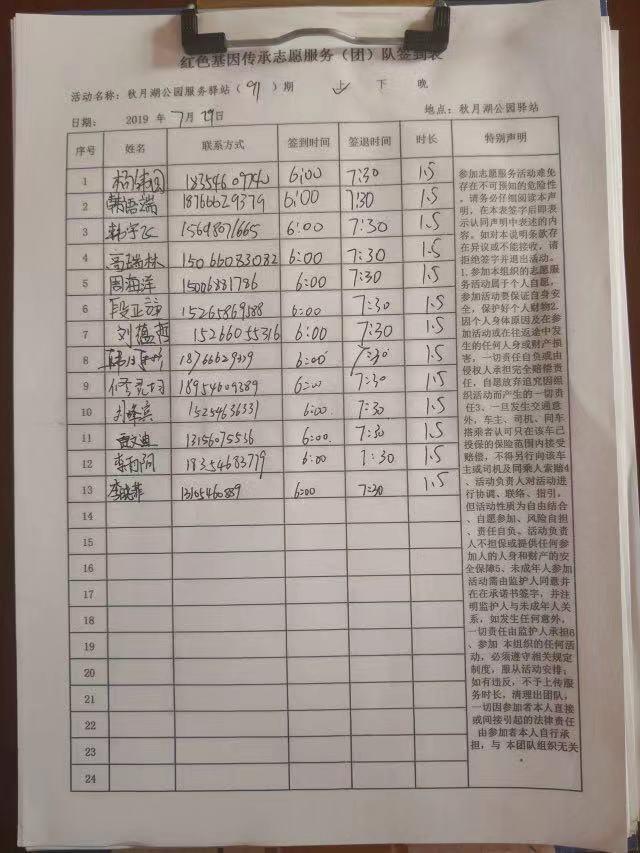 红色基因传承志愿服务（团）队签到表
活动名称：秋月湖公园服务驿站（91）期 上 下 晚
日期： 2019 年 7月29日 地点：秋月湖公园驿站
序号 姓名 联系方式 签到时间 签退时间 时长 特别声明
1 18354609740 6:00 7:30 1.5
2 韩语端 18766629379 6:00 7:30 1.5
3 韩宇飞 15698071665 6:00 7:30 1.5
4 高瑞林 15066033082 6:00 7:30 1.5
5 周海洋 15006831786 6:00 7:30 1.5
6 15265869588 6:00 7:30 1.5
7 刘蕴哲 15266055316 6:00 7:30 1.5
8 18766629379 6:00 7:30 1.5
9 18954609389 6:00 7:30 1.5
10 刘峰宾 15254636331 6:00 7:30 1.5
11 13156075536 6:00 7:30 1.5
12 李雨阿 18354683779 6:00 7:30 1.5
13 李晓菲 13105460889 6:00 7:30 1.5
14
15
16
17
18
19
20
21
22
23
24
参加志愿服务活动难免
存在不可预知的危险性
。请务必仔细阅读本声
明，在本表签字后即表
示认同声明中表述的内
容。如对本说明条款存
在异议或不能接收，请
拒绝签字并退出活动。
1.参加本组织的志愿服
务活动属于个人自愿，
参加活动要保证自身安
全，保护好个人财物2.
因个人身体原因及在参
加活动或在往返途中发
生的任何人身或财产损
害，一切责任自负或由
侵权人承担完全赔偿责
任，自愿放弃追究因组
织活动而产生的一切责
任3、一旦发生交通意
外，车主、司机、同车
搭乘者认可只在该车已
投保的保险范围内接受
赔偿，不得另行向该车
主或司机及同乘人索赔4
、活动负责人对活动进
行协调、联络、指引，
但活动性质为自由结合
、自愿参加、风险自担
、责任自负。活动负责
人不担保或提供任何参
加人的人身和财产的安
全保障5、未成年人参加
活动需由监护人同意并
在在承诺书签字，并注
明监护人与未成年人关
系，如发生任何意外，
一切责任由监护人承担6
、参加 本组织的任何活
动，必须遵守相关规定
制度，服从活动安排；
如有违反，不予上传服
务时长，清理出团队，
一切因参加者本人直接
或间接引起的法律责任
由参加者本人自行承
担，与 本团队组织无关